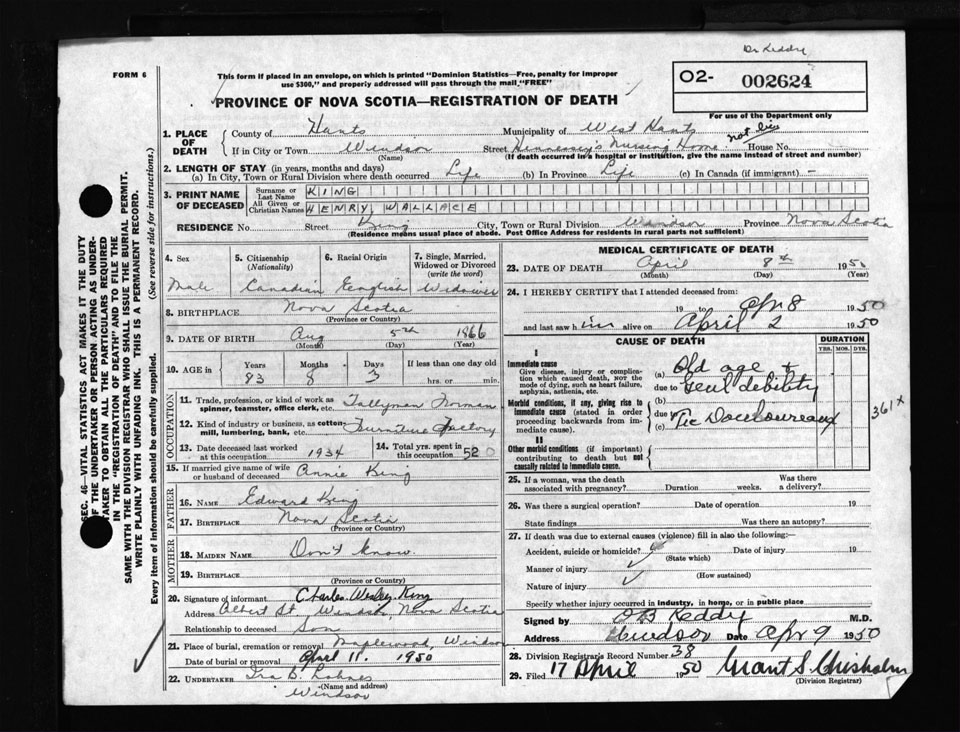 Dr Keddy
FORM 6
This form if placed in an envelope, on which is printed "Dominion Statistics—Free, penalty for improper
use $300," and properly addressed will pass through the mail "FREE"
O2- 002624
PROVINCE OF NOVA SCOTIA—REGISTRATION OF DEATH
For use of the Department only
1. PLACE OF DEATH
County of Hants Municipality of West Hants
If in City or Town Windsor (Name) Street Hennessey's Nursing Home House No.
(If death occurred in a hospital or institution, give the name instead of street and number)
2. LENGTH OF STAY (in years, months and days)
(a) In City, Town or Rural Division where death occurred Life (b) In Province Life (c) In Canada (if immigrant) —
3. PRINT NAME OF DECEASED
Surname or Last Name KING
All Given or Christian Names HENRY WALLACE
RESIDENCE No. Street King City, Town or Rural Division Windsor Province Nova Scotia
(Residence means usual place of abode. Post Office Address for residents in rural parts not sufficient)
4. Sex Male
5. Citizenship (Nationality) Canadian
6. Racial Origin English
7. Single, Married, Widowed or Divorced (write the word) Widower
8. BIRTHPLACE Nova Scotia
(Province or Country)
9. DATE OF BIRTH Aug 5th 1866
(Month) (Day) (Year)
10. AGE in Years Months Days If less than one day old
83 8 3 hrs. or min.
OCCUPATION
11. Trade, profession, or kind of work as spinner, teamster, office clerk, etc. Tallyman
12. Kind of industry or business, as cotton mill, lumbering, bank, etc. Furniture Factory
13. Date deceased last worked at this occupation 1934
14. Total yrs. spent in this occupation 52
15. If married give name of wife or husband of deceased Annie King
FATHER
16. NAME Edward King
17. BIRTHPLACE Nova Scotia
(Province or Country)
MOTHER
18. MAIDEN NAME Don't know
19. BIRTHPLACE
(Province or Country)
20. Signature of informant Charles Wesley King
Address Albert St, Windsor, Nova Scotia
Relationship to deceased Son
21. Place of burial, cremation or removal Maplewood, Windsor
Date of burial or removal April 11. 1950
22. UNDERTAKER Ira B. Lohnes
(Name and address)
Windsor
MEDICAL CERTIFICATE OF DEATH
23. DATE OF DEATH April 8th 1950
(Month) (Day) (Year)
24. I HEREBY CERTIFY that I attended deceased from:
19 to Apr 8 1950
and last saw him alive on April 2 1950
CAUSE OF DEATH
DURATION
YRS. MOS. DYS.
I
Immediate cause
Give disease, injury or complication which caused death, NOT the mode of dying, such as heart failure, asphyxia, asthenia, etc.
(a) Old age +
due to Genl debility
Morbid conditions, if any, giving rise to immediate cause (stated in order proceeding backwards from immediate cause).
(b)
due to
(c) Tic Douchoureaux
361 x
II
Other morbid conditions (if important) contributing to death but not causally related to immediate cause.
25. If a woman, was the death associated with pregnancy? Duration weeks. Was there a delivery?
26. Was there a surgical operation? Date of operation 19
State findings Was there an autopsy?
27. If death was due to external causes (violence) fill in also the following:—
Accident, suicide or homicide? Date of injury 19
(State which)
Manner of injury
(How sustained)
Nature of injury
Specify whether injury occurred in industry, in home, or in public place
Signed by Keddy M.D.
Address Windsor Date Apr 9 1950
28. Division Registrar's Record Number 38
29. Filed 17 April 1950 Grant S. Chisholm
(Division Registrar)
SEC. 46—VITAL STATISTICS ACT MAKES IT THE DUTY
OF THE UNDERTAKER OR PERSON ACTING AS UNDERTAKER TO OBTAIN ALL THE PARTICULARS REQUIRED
IN THE "REGISTRATION OF DEATH" AND TO FILE THE
SAME WITH THE DIVISION REGISTRAR WHO SHALL ISSUE THE BURIAL PERMIT.
WRITE PLAINLY WITH UNFADING INK. THIS IS A PERMANENT RECORD.
Every item of information should be carefully supplied. (See reverse side for instructions.)